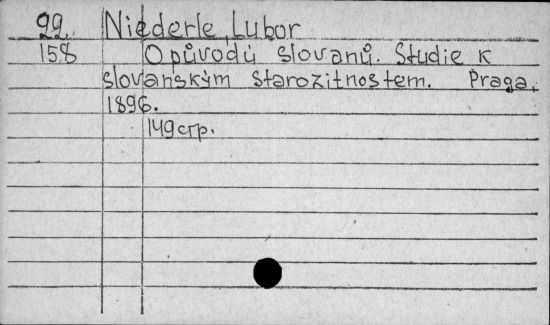 99. Niederle, Lubor
158 O původů slovanů. Studie k
slovanskym starozitnostem. Praga,
1896.
149стр.